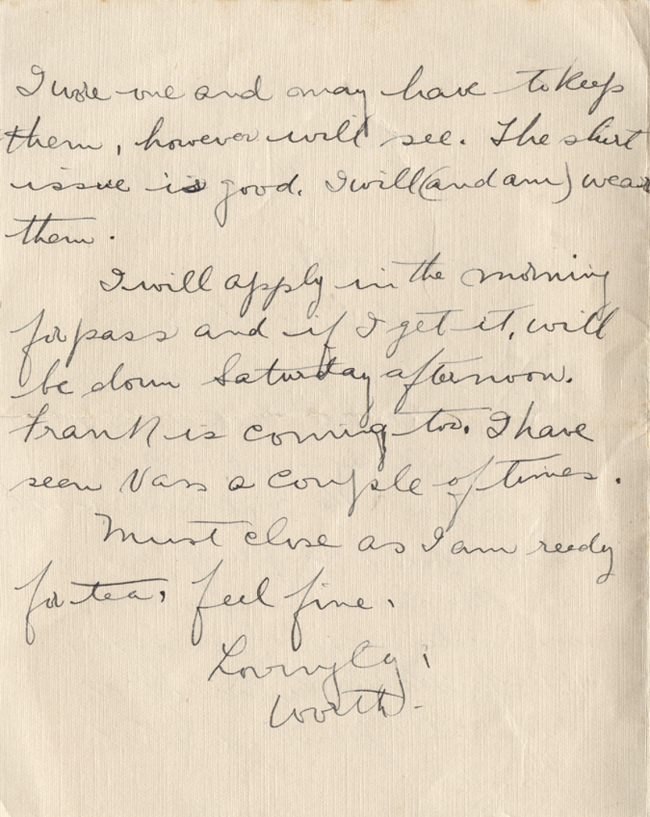 I wore one and may have to keep
them, however will see. The shirt
issue is good. I will (and am) wear
them.
I will apply in the morning
for pass and if I get it, will
be down Saturday afternoon.
Frank is coming too. I have
seen Vass a couple of times.
Must close as I am ready
for tea, feel fine,
Lovingly,
Worth.